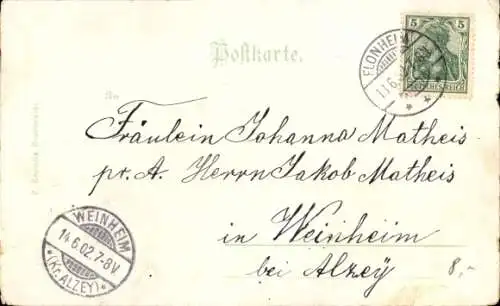 Postkarte.
5 5
DEUTSCHES REICH
FLONHEIM
13.6.
An
Fräulein Johanna Matheis
pr. A. Herrn Jakob Matheis
in Weinheim
bei Alzey
8,-
WEINHEIM
14.6.02.7-8V
*(Kr. ALZEY)*